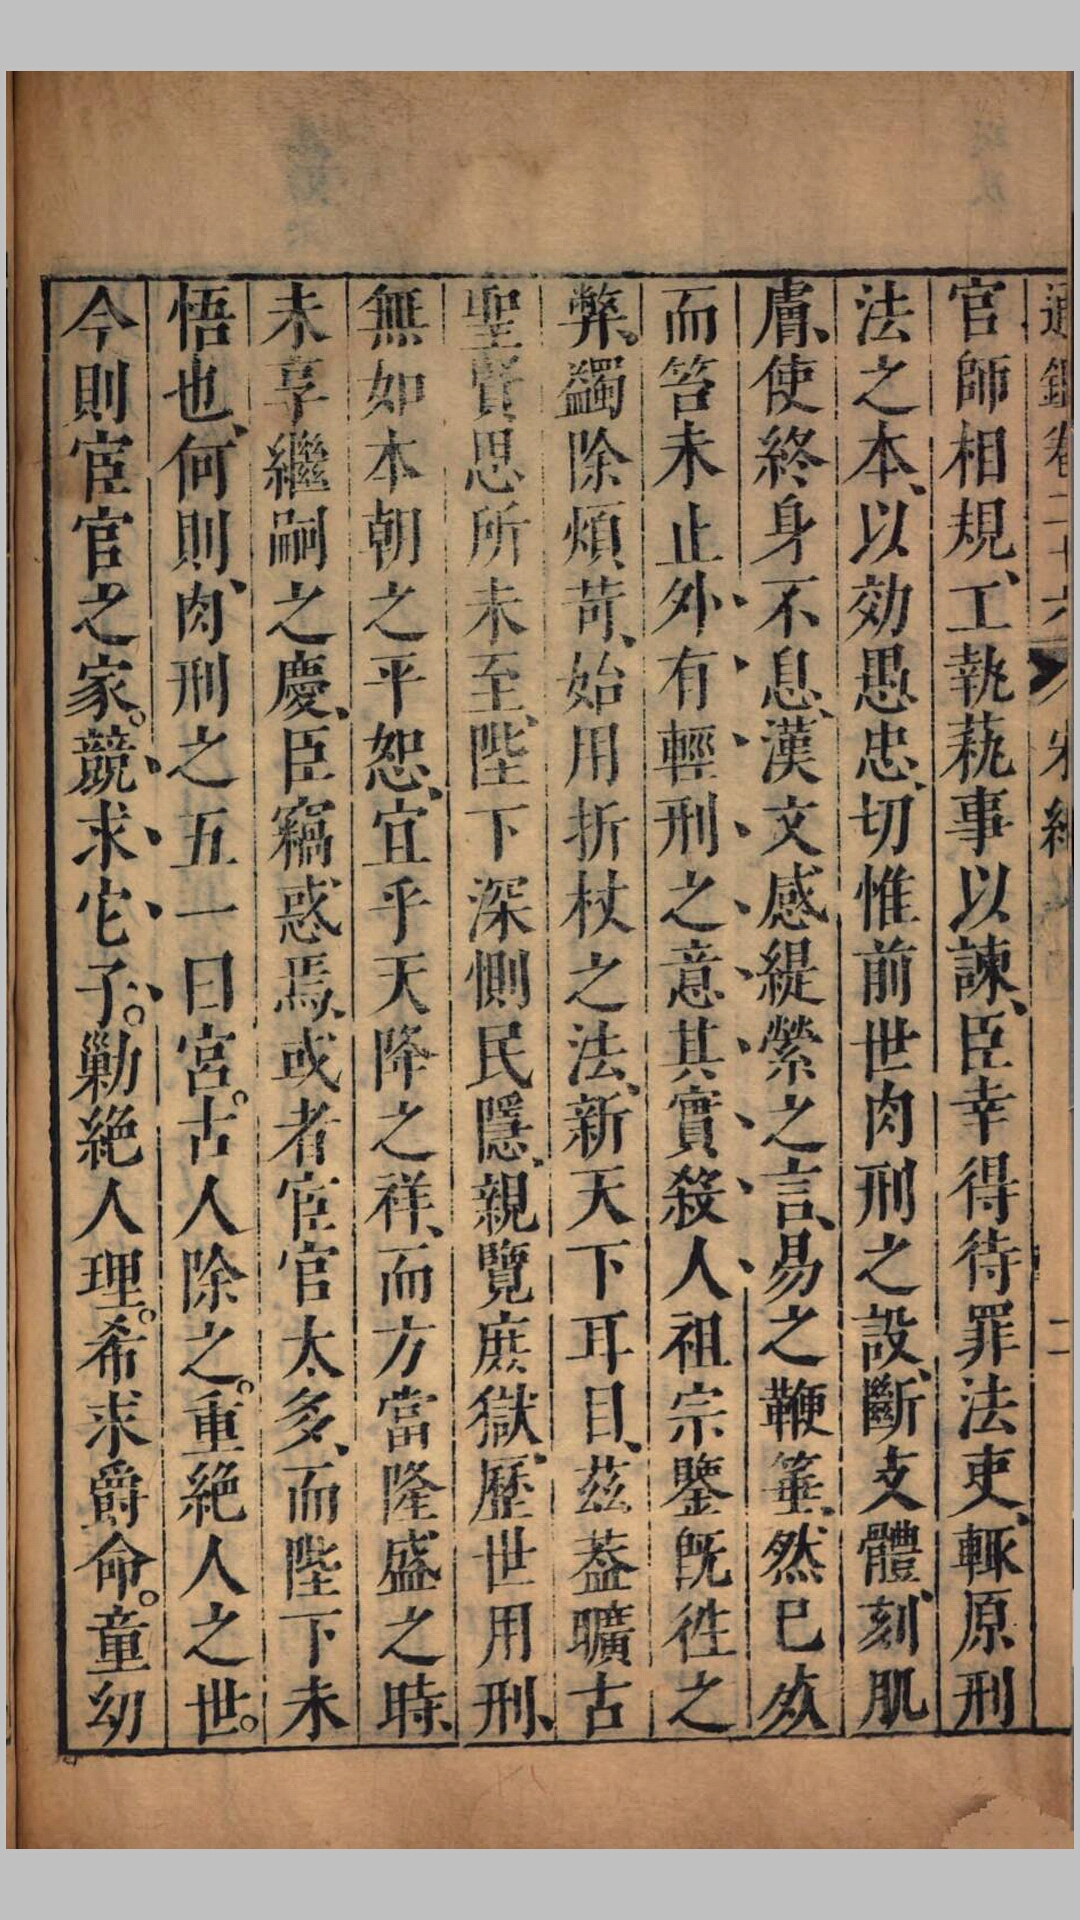 通鑑卷二十六 宋紀 二
官師相規、工執蓺事以諫、臣幸得待罪法吏、輒原刑
法之本、以効愚忠、切惟前世肉刑之設、斷支體、刻肌
膚、使終身不息、漢文感緹縈之言、易之鞭箠、然已㱾
而笞未止、外有輕刑之意、其實殺人、祖宗鑒既徃之
弊、蠲除煩苛、始用折杖之法、新天下耳目、茲葢曠古
聖賢思所未至、陛下深惻民隱、親覽庶獄、歷世用刑、
無如本朝之平恕、宜乎天降之祥、而方當隆盛之時、
未享繼嗣之慶、臣竊惑焉、或者宦官太多、而陛下未
悟也、何則、肉刑之五一曰宮。古人除之。重絕人之世。
今則宦官之家。競求它子。勦絕人理。希求爵命。童幼